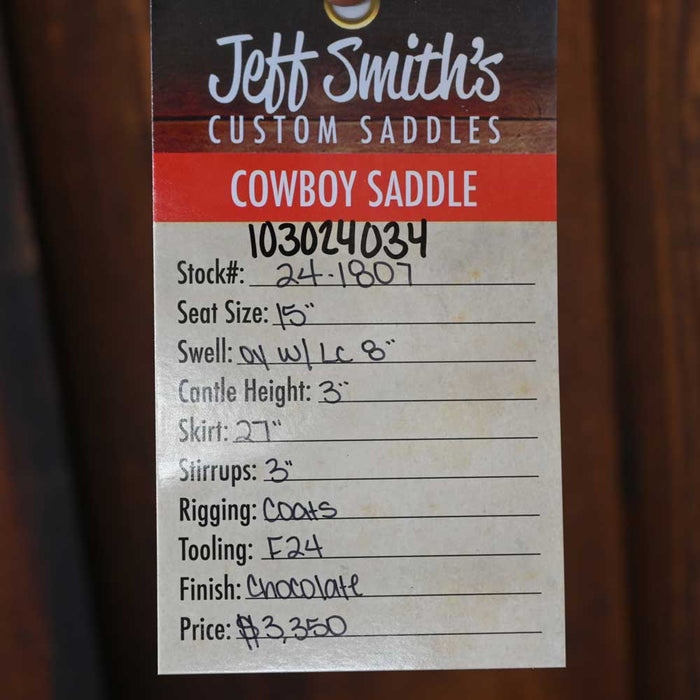 Jeff Smith's
CUSTOM SADDLES
COWBOY SADDLE
103024034
Stock#: 24-1807
Seat Size: 15"
Swell: oy w/ Lc 8"
Cantle Height: 3"
Skirt: 27"
Stirrups: 3"
Rigging: Coats
Tooling: F24
Finish: Chocolate
Price: $3,350